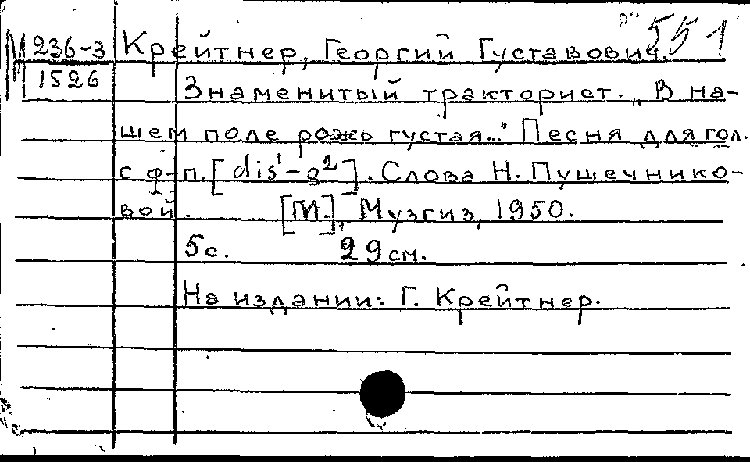 551
М 236-3 Крейтнер, Георгий Густавович.
1526 Знаменитый тракторист. „В на-
шем поле рожь густая..." Песня для гол.
с ф-п. [dis¹-g²]. Слова Н. Пушечнико-
вой. [М], Музгиз, 1950.
5 с. 29 см.
На издании: Г. Крейтнер.